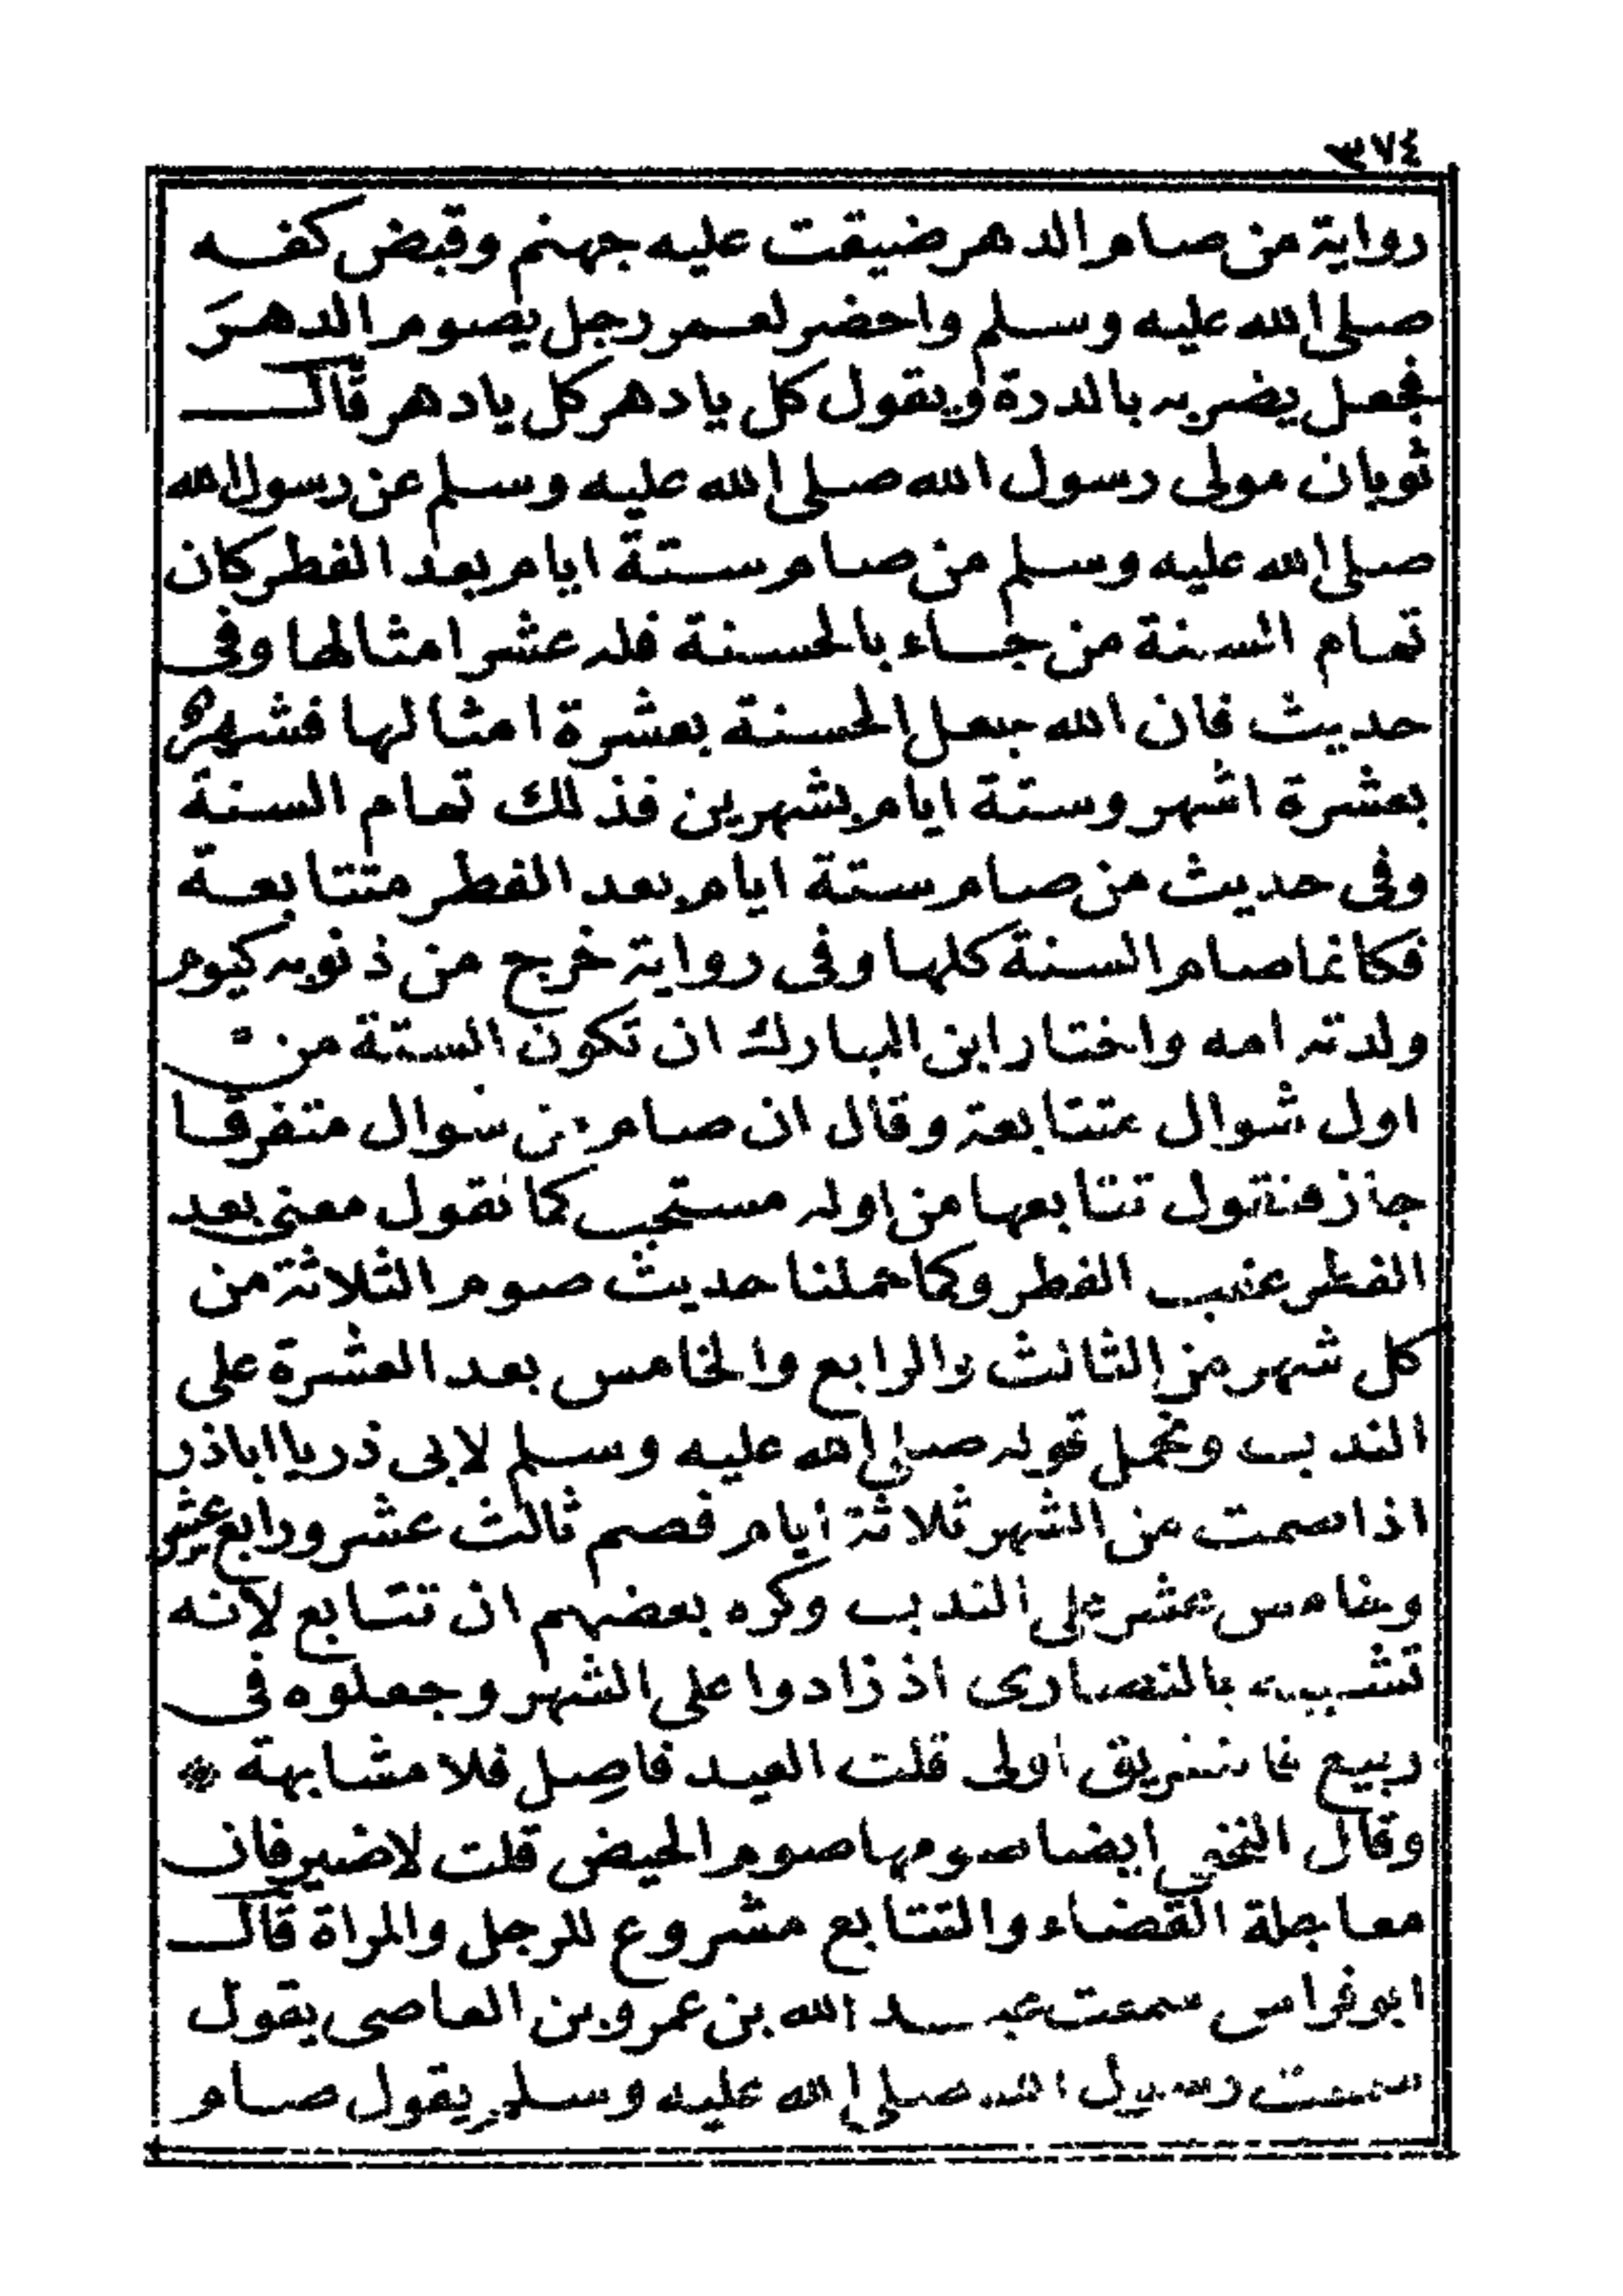 ٣٧٤
رواية من صام الدهر ضيقت عليه جهنم وقبض كفه
صلى الله عليه وسلم واحضر لعمر رجل يصوم الدهرَ
فجعل يضربه بالدرة ويقول كل يا دهر كل يا دهر قال
ثوبان مولى رسول الله صلى الله عليه وسلم عن رسول الله
صلى الله عليه وسلم من صام ستة ايام بعد الفطر كان
تمام السنة من جاء بالحسنة فله عشر امثالها وفى
حديث فان الله جعل الحسنة بعشرة امثالها فشهر
بعشرة اشهر وستة ايام بشهرين فذلك تمام السنة
وفى حديث من صام ستة ايام بعد الفطر متتابعة
فكانما صام السنة كلها وفى رواية خرج من ذنوبه كيوم
ولدته امه واختار ابن المبارك ان تكون الستة من
اول شوال متتابعة وقال ان صام من شوال متفرقا
جاز فنقول تتابعها من اوله مستحب كما نقول معنى بعد
الفطر عقب الفطر وكما حملنا حديث صوم الثلاثة من
كل شهر من الثالث والرابع والخامس بعد العشرة على
الندب ونحمل قوله صلى الله عليه وسلم لابى ذر يا اباذر
اذا صمت من الشهر ثلاثة ايام فصم ثالث عشر ورابع عشر
وخامس عشر على الندب وكره بعضهم ان تتابع لانه
تشبيه بالنصارى اذ زادوا على الشهر وجعلوه فى
ربيع فالتفريق اولى قلت العيد فاصل فلا مشابهة *
وقال النخعي ايضا صومها صوم الحيض قلت لا ضير فان
معاجلة القضاء والتتابع مشروع للرجل والمراة قال
ابو فراس سمعت عبد الله بن عمرو بن العاصى يقول
سمعت رسول الله صلى الله عليه وسلم يقول صام